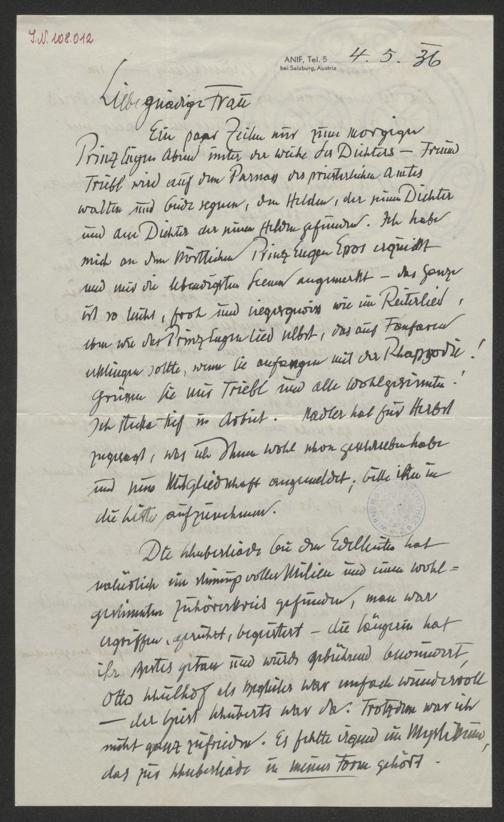 J.N. 108.012
ANIF, Tel. 5
bei Salzburg, Austria
4. 5. 36
Liebe gnädige Frau
Ein paar Zeilen nur zum morgigen
Prinz Eugen Abend unter der Weihe des Dichters – Freund
Triebl wird auf dem Parnass des priesterlichen Amtes
walten und beide segnen, den Helden, der seinen Dichter
und den Dichter der seinen Helden gefunden. Ich habe
mich an dem köstlichen Prinz Eugen Epos erquickt
und mir die lebendigsten Scenen angemerkt – das Ganze
ist so leicht, froh und siegesgewiss wie ein Reiterlied,
eben wie das Prinz Eugen Lied selbst, das aus Fanfaren
erklingen sollte, wenn Sie anfangen mit der Rhapsodie!
Grüssen Sie mir Triebl und alle Wohlgesinnten!
Ich stecke tief in Arbeit. Nadler hat für Herbst
zugesagt, was ich Ihnen wohl schon geschrieben habe
und seine Mitgliedschaft angemeldet; bitte ihn in
die Liste aufzunehmen.
Die Schubertiade bei den Edelleuten hat
natürlich ein stimmungsvolles Milieu und einen wohl=
gestimmten Zuhörerkreis gefunden, man war
ergriffen, gerührt, begeistert – die Sängerin hat
ihr Bestes getan und wurde gebührend bewundert,
Otto Schulhof als Begleiter war einfach wundervoll
– der Geist Schuberts war da. Trotzdem war ich
nicht ganz zufrieden. Es fehlte irgend ein Mysterium,
das zur Schubertiade in meiner Form gehört.